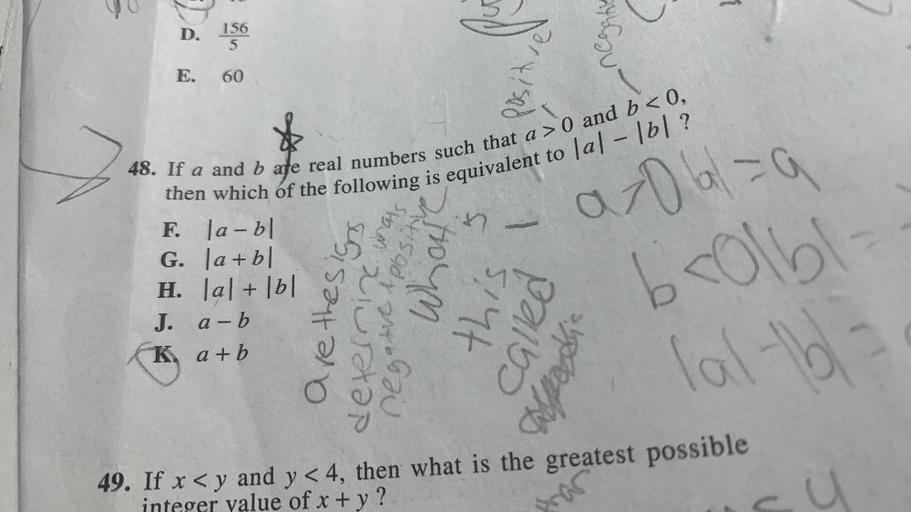 D. 156/5
E. 60
positive
negative
48. If a and b are real numbers such that a > 0 and b < 0,
then which of the following is equivalent to |a| − |b| ?
F. |a − b|
G. |a + b|
H. |a| + |b|
J. a − b
K. a + b
are the signs
determine whats
negative + positive
what
is
this
called
a>0 |a| = a
b<0 |b| = -
|a| - |b| =
49. If x < y and y < 4, then what is the greatest possible
integer value of x + y ?
than
< 4